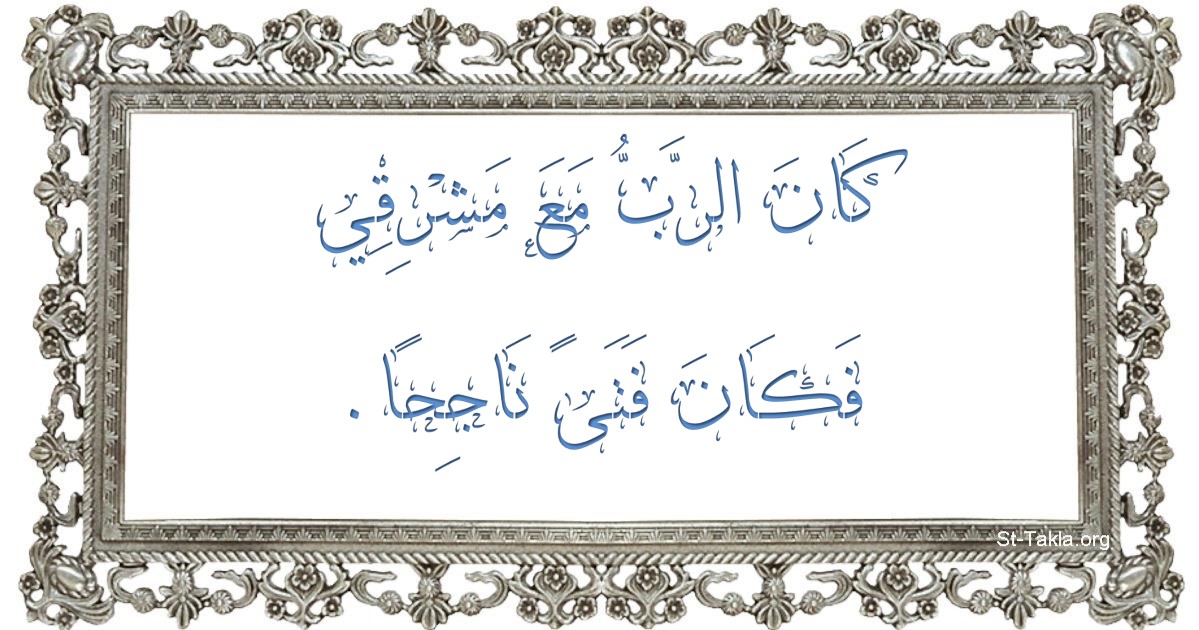 كَانَ الرَّبُّ مَعَ مَشْرِقِي
فَكَانَ فَتَىً نَاجِحًا .
St-Takla.org